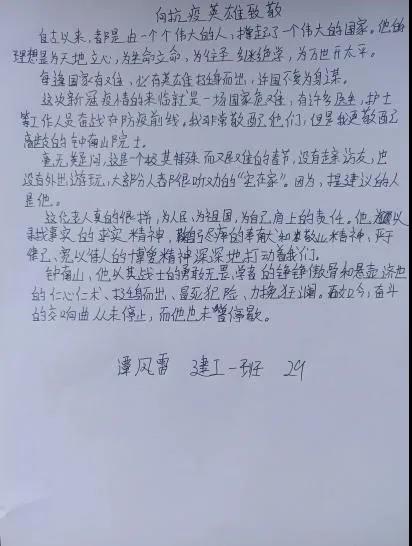 向抗疫英雄致敬
自古以来,都是由一个个伟大的人,撑起了一个伟大的国家。他的
理想是为天地立心,为生命立命,为往圣继绝学,为万世开太平。
每逢国家有难,必有英雄挺身而出,许国不复为身谋。
这次新冠疫情的来临就是一场国家危难,有许多医生,护士
等工作人员奋战在防疫前线。我非常敬配他们,但是我更敬配
高龄的钟南山院士。
毫无疑问,这是一个极其特殊而又艰难的春节,没有走亲访友,也
没有外出游玩,大部分人都很听劝的"宅在家"。因为,提建议的人
是他。
这位老人真的很拼,为人民,为祖国,为自己肩上的责任。他以
寻找事实的求实精神,尽瘁的奉献和敬业精神,严于
律己,宽以待人的博爱精神深深地打动着我们。
钟南山,他以其战士的勇敢无畏,学者的铮铮傲骨和悬壶济世
的仁心仁术,挺身而出,冒死犯险,力挽狂澜。而如今,奋斗
的交响曲从未停止,而他也未暂停歇。
谭风雷 建工一班 29